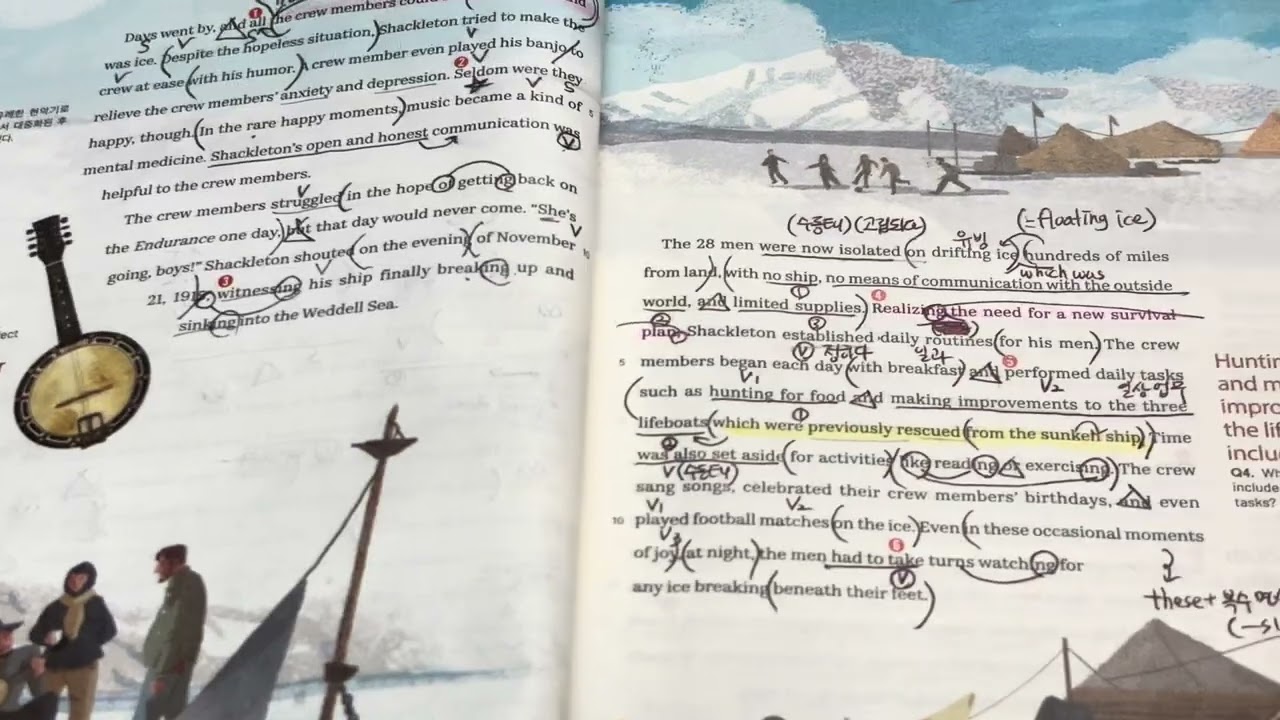 Days went by, and all the crew members
was ice. Despite the hopeless situation, Shackleton tried to make the
crew at ease with his humor. A crew member even played his banjo to
relieve the crew members' anxiety and depression. Seldom were they
happy, though. In the rare happy moments, music became a kind of
mental medicine. Shackleton's open and honest communication was
helpful to the crew members.
The crew members struggled in the hope of getting back on
the Endurance one day, but that day would never come. "She's
going, boys!" Shackleton shouted on the evening of November
21, witnessing his ship finally breaking up and
sinking into the Weddell Sea.
현악기로
대중화된 후
(수동태) (고립되다) (=floating ice)
유빙
The 28 men were now isolated on drifting ice hundreds of miles
which was
from land, with no ship, no means of communication with the outside
world, and limited supplies. Realizing the need for a new survival
plan, Shackleton established daily routines for his men. The crew
정하다 일과
5 members began each day with breakfast and performed daily tasks
V1 V2 일상 업무
such as hunting for food and making improvements to the three
lifeboats which were previously rescued from the sunken ship. Time
was also set aside for activities like reading or exercising. The crew
V (수동태)
sang songs, celebrated their crew members' birthdays, and even
V1 V2
10 played football matches on the ice. Even in these occasional moments
V3
of joy, at night, the men had to take turns watching for
any ice breaking beneath their feet.
these + 복수
Q4.
include
tasks?